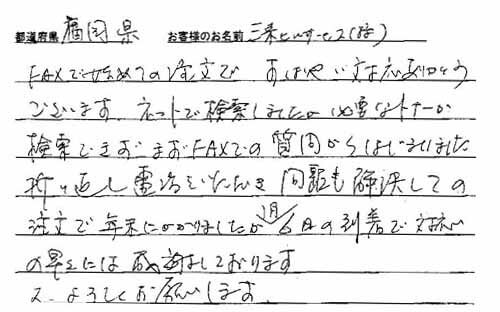 都道府県 福岡県 お客様のお名前
FAXで始めての注文で すばやい対応ありがとう
ございます。ネットで検索しましたが必要なトナーが
検索できず まずFAXでの質問からはじまりました
折り返し電話をいただき 問題も解決しての
注文で年末にかかりましたが 1月6日の到着で対応
の早さには感謝しております
又、よろしくお願いします